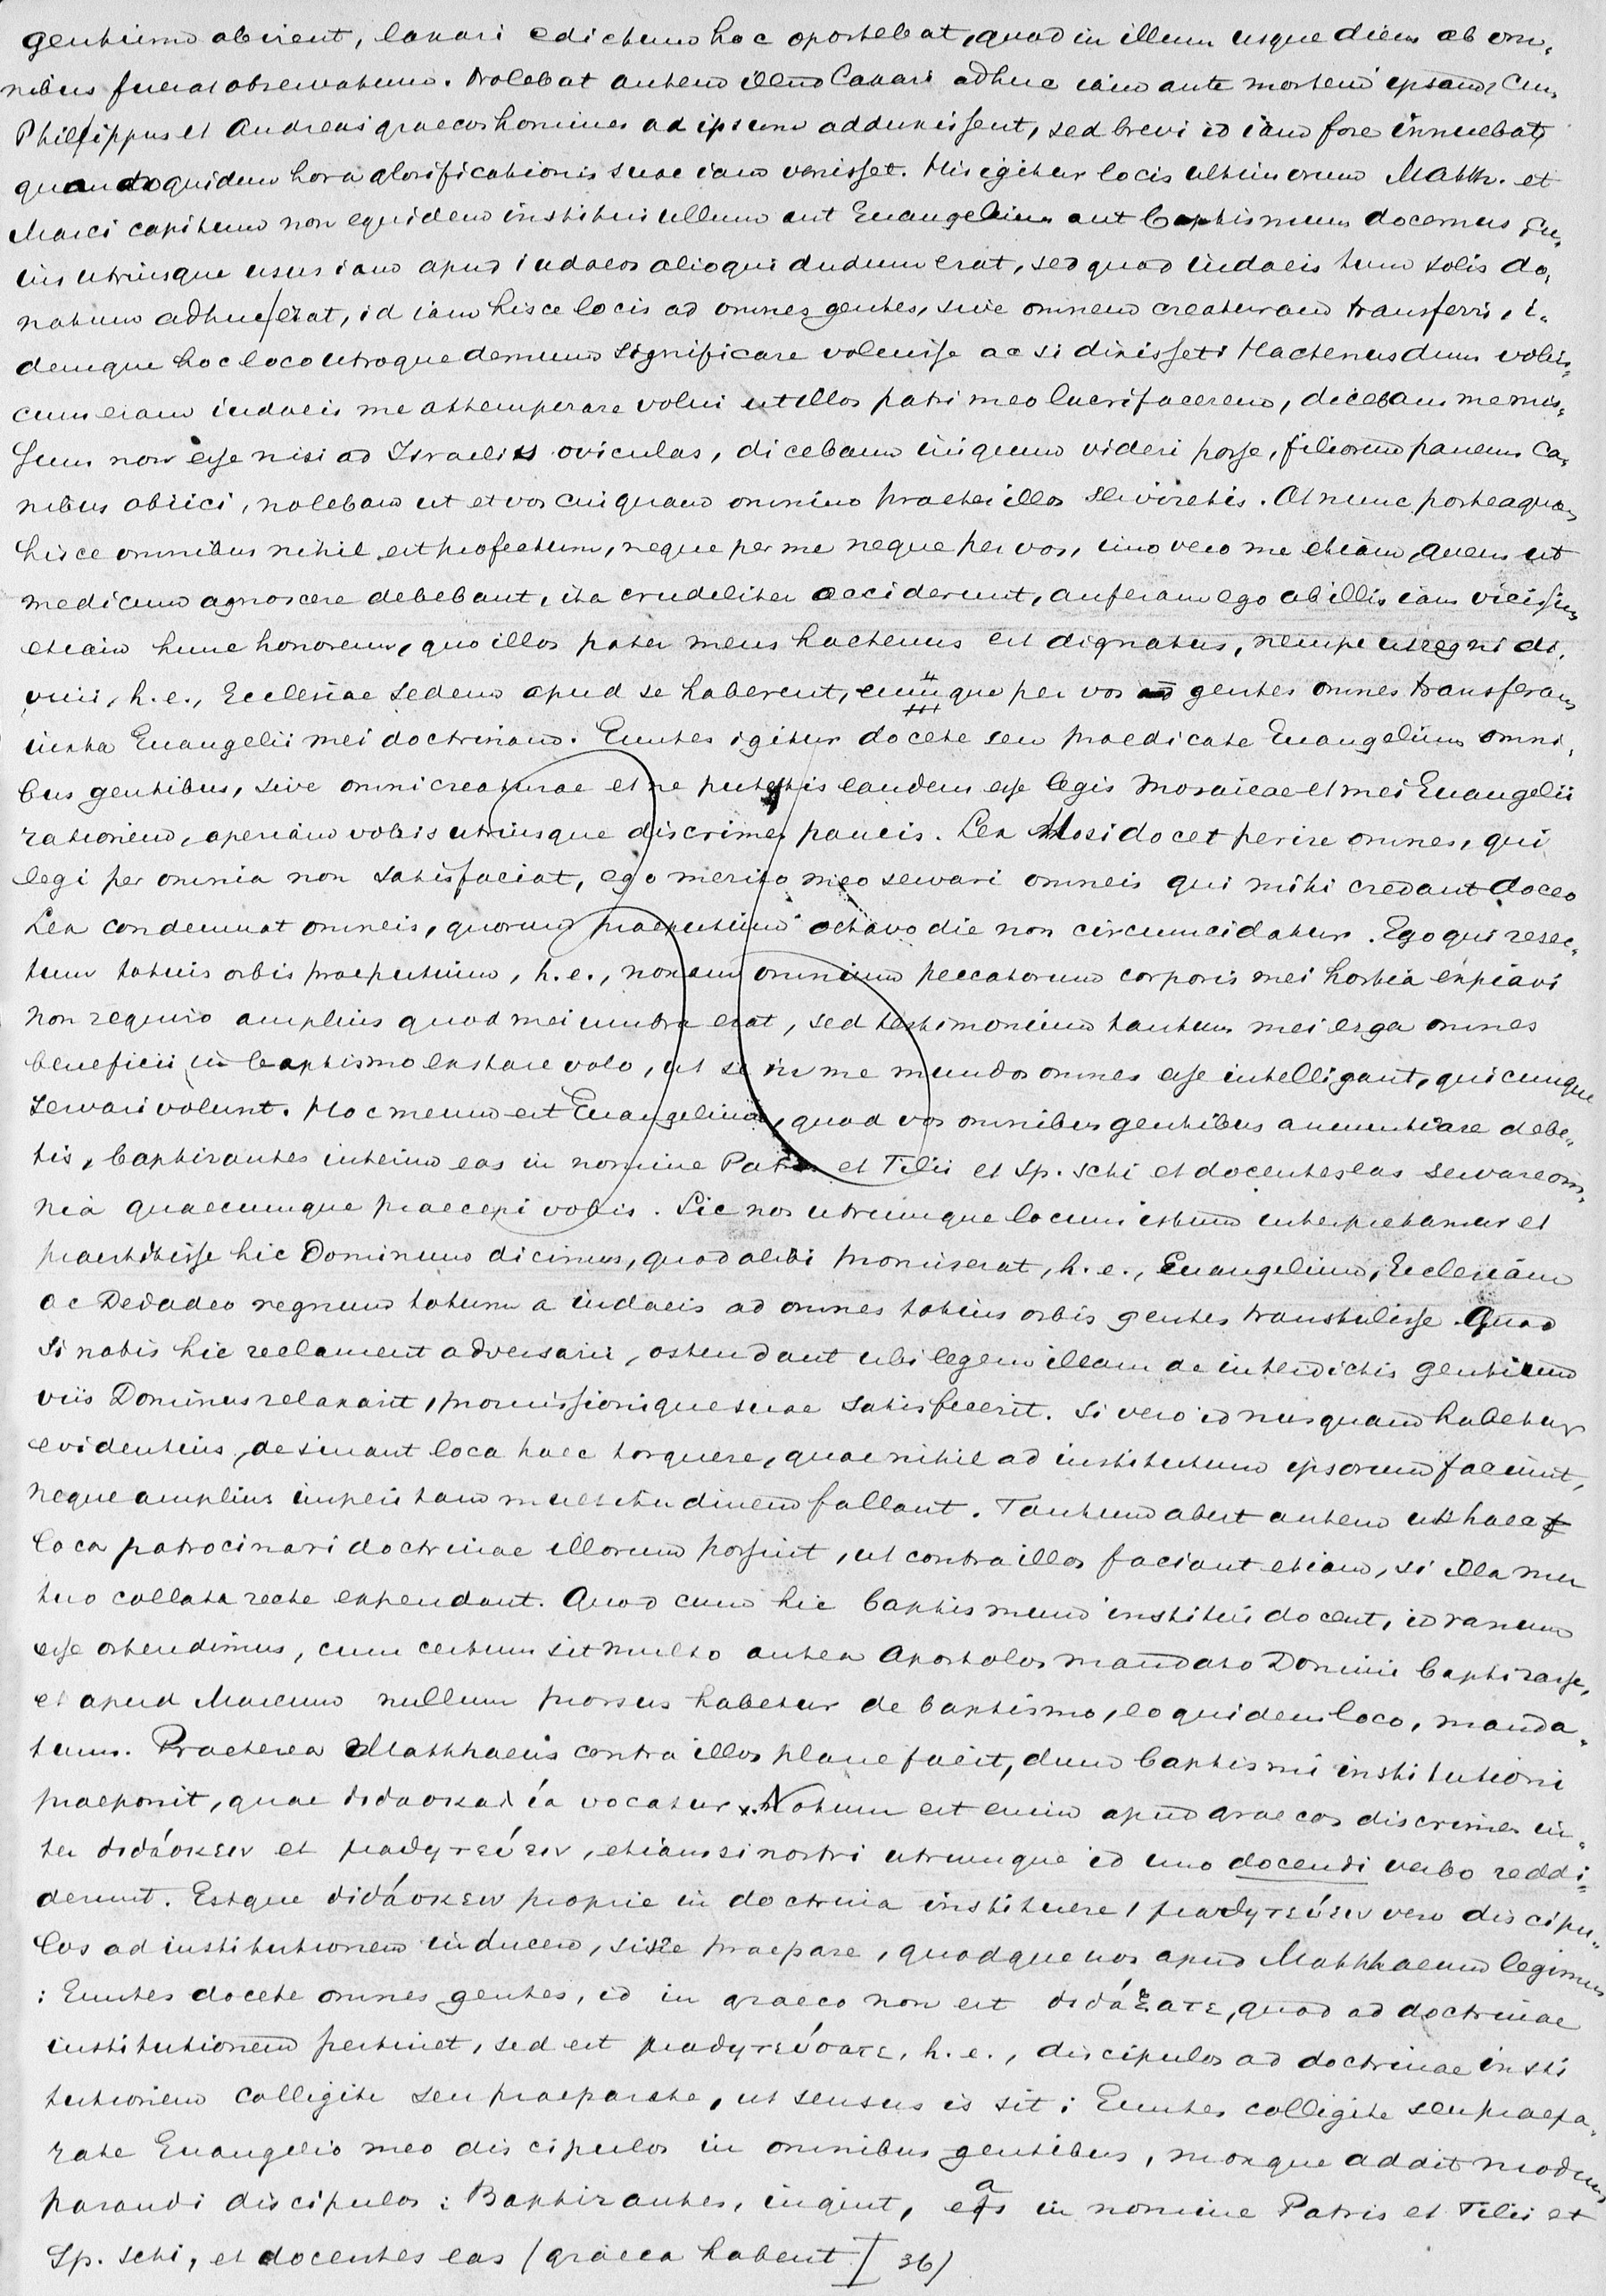 gentium abirent, laxari edictum hoc oportebat, quod in illum usque diem ab om-
nibus fuerat observatum. Nolebat autem illud laxari adhuc iam ante mortem ipsam, cum
Philippus et Andreas graecos homines ad ipsum adduxissent, sed brevi id iam fore innuebat,
quandoquidem hora glorificationis suae iam venisset. His igitur locis ultimorum Matth. et
Marci capitum non equidem institui ullum aut Euangelium aut baptismum docemus cu-
ius utriusque usus iam apud iudaeos alioqui dudum erat, sed quod iudaeis tum solis do-
natum adhuc erat, id iam hisce locis ad omnes gentes, sive omnem creaturam transferri, i-
demque hoc loco utroque demum significare voluisse ac si dixisset: Hactenus dum vobis-
cum eram iudaeis me attemperare volui ut illos patri meo lucrifacerem, dicebam me mis-
sum non esse nisi ad Israelis oviculas, dicebam iniquum videri posse, filiorum panem ca-
nibus obiici, nolebam ut et vos cuiquam omnino praeter illos serviretis. At nunc posteaquam
hisce omnibus nihil est profectum, neque per me neque per vos, imo vero me etiam, quem ut
medicum agnoscere debebant, ita crudeliter occiderunt, auferam ego ab illis iam vicissim
etiam hunc honorem, quo illos pater meus hactenus est dignatus, nempe ut regni di-
vini, h.e., Ecclesiae sedem apud se haberent, eumque per vos ad gentes omnes transferam
iuxta Euangelii mei doctrinam. Euntes igitur docete seu praedicate Euangelium omni-
bus gentibus, sive omni creaturae et ne putetis eandem esse legis Mosaicae et mei Euangelii
rationem, aperiam vobis utriusque discrimen paucis. Lex Mosi docet perire omnes, qui
legi per omnia non satisfaciat, ego merito meo servari omneis qui mihi credant doceo
Lex condemnat omneis, quorum praeputium octavo die non circumcidatur. Ego qui resec-
tum totius orbis praeputium, h.e., noxam omnium peccatorum corporis mei hostia expiavi
non requiro amplius quod mei umbra erat, sed testimonium tantum mei erga omnes
beneficii in baptismo exstare volo, ut se in me mundos omnes esse intelligant, quicunque
servari volunt. Hoc meum est Euangelium, quod vos omnibus gentibus annuntiare debe-
tis, baptizantes interim eas in nomine Patris et Filii et Sp. Scti et docentes eas servare om-
nia quaecumque praecepi vobis. Sic nos utrumque locum istum interpretamur et
praestitisse hic Dominum dicimus, quod alibi promiserat, h.e., Euangelium, Ecclesiam
ac Dei adeo regnum totum a iudaeis ad omnes totius orbis gentes transtulisse. Quod
si nobis hic reclament adversarii, ostendant ubi legem illam de interdictis gentium
viis Dominus relaxarit, promissionique suae satisfecerit. Si vero id nusquam habetur
evidentius, desinant loca haec torquere, quae nihil ad institutum ipsorum faciunt,
neque amplius imperitam multitudinem fallant. Tantum abest autem ut haec
loca patrocinari doctrinae illorum possint, ut contra illos faciant etiam, si illa mu
tuo collata recte expendant. Quod cum hic baptismum institui docent, id vanum
esse ostendimus, cum certum sit multo antea Apostolos mandato Domini baptizasse,
et apud Marcum nullum prorsus habetur de baptismo, eo quidem loco, manda-
tum. Praeterea Matthaeus contra illos plane facit, dum baptismi institutioni
praeponit, quae διδασκαλία vocatur. Notum est enim apud graecos discrimen in-
ter διδάσκειν et μαθητεύειν, etiamsi nostri utrumque id uno docendi verbo reddi-
derunt. Estque διδάσκειν proprie in doctrina instituere, μαθητεύειν vero discipu-
los ad institutionem inducere, sive praepare, quodque nos apud Matthaeum legimus
: Euntes docete omnes gentes, id in graeco non est διδάξατε, quod ad doctrinae
institutionem pertinet, sed est μαθητεύσατε, h.e., discipulos ad doctrinae insti
tutionem colligite seu praeparate, ut sensus is sit: Euntes colligite seu praepa-
rate Euangelio meo discipulos in omnibus gentibus, moxque addit modum
parandi discipulos: Baptizantes, inquit, eas in nomine Patris et Filii et
Sp. Scti, et docentes eas (graeca habent I 36)